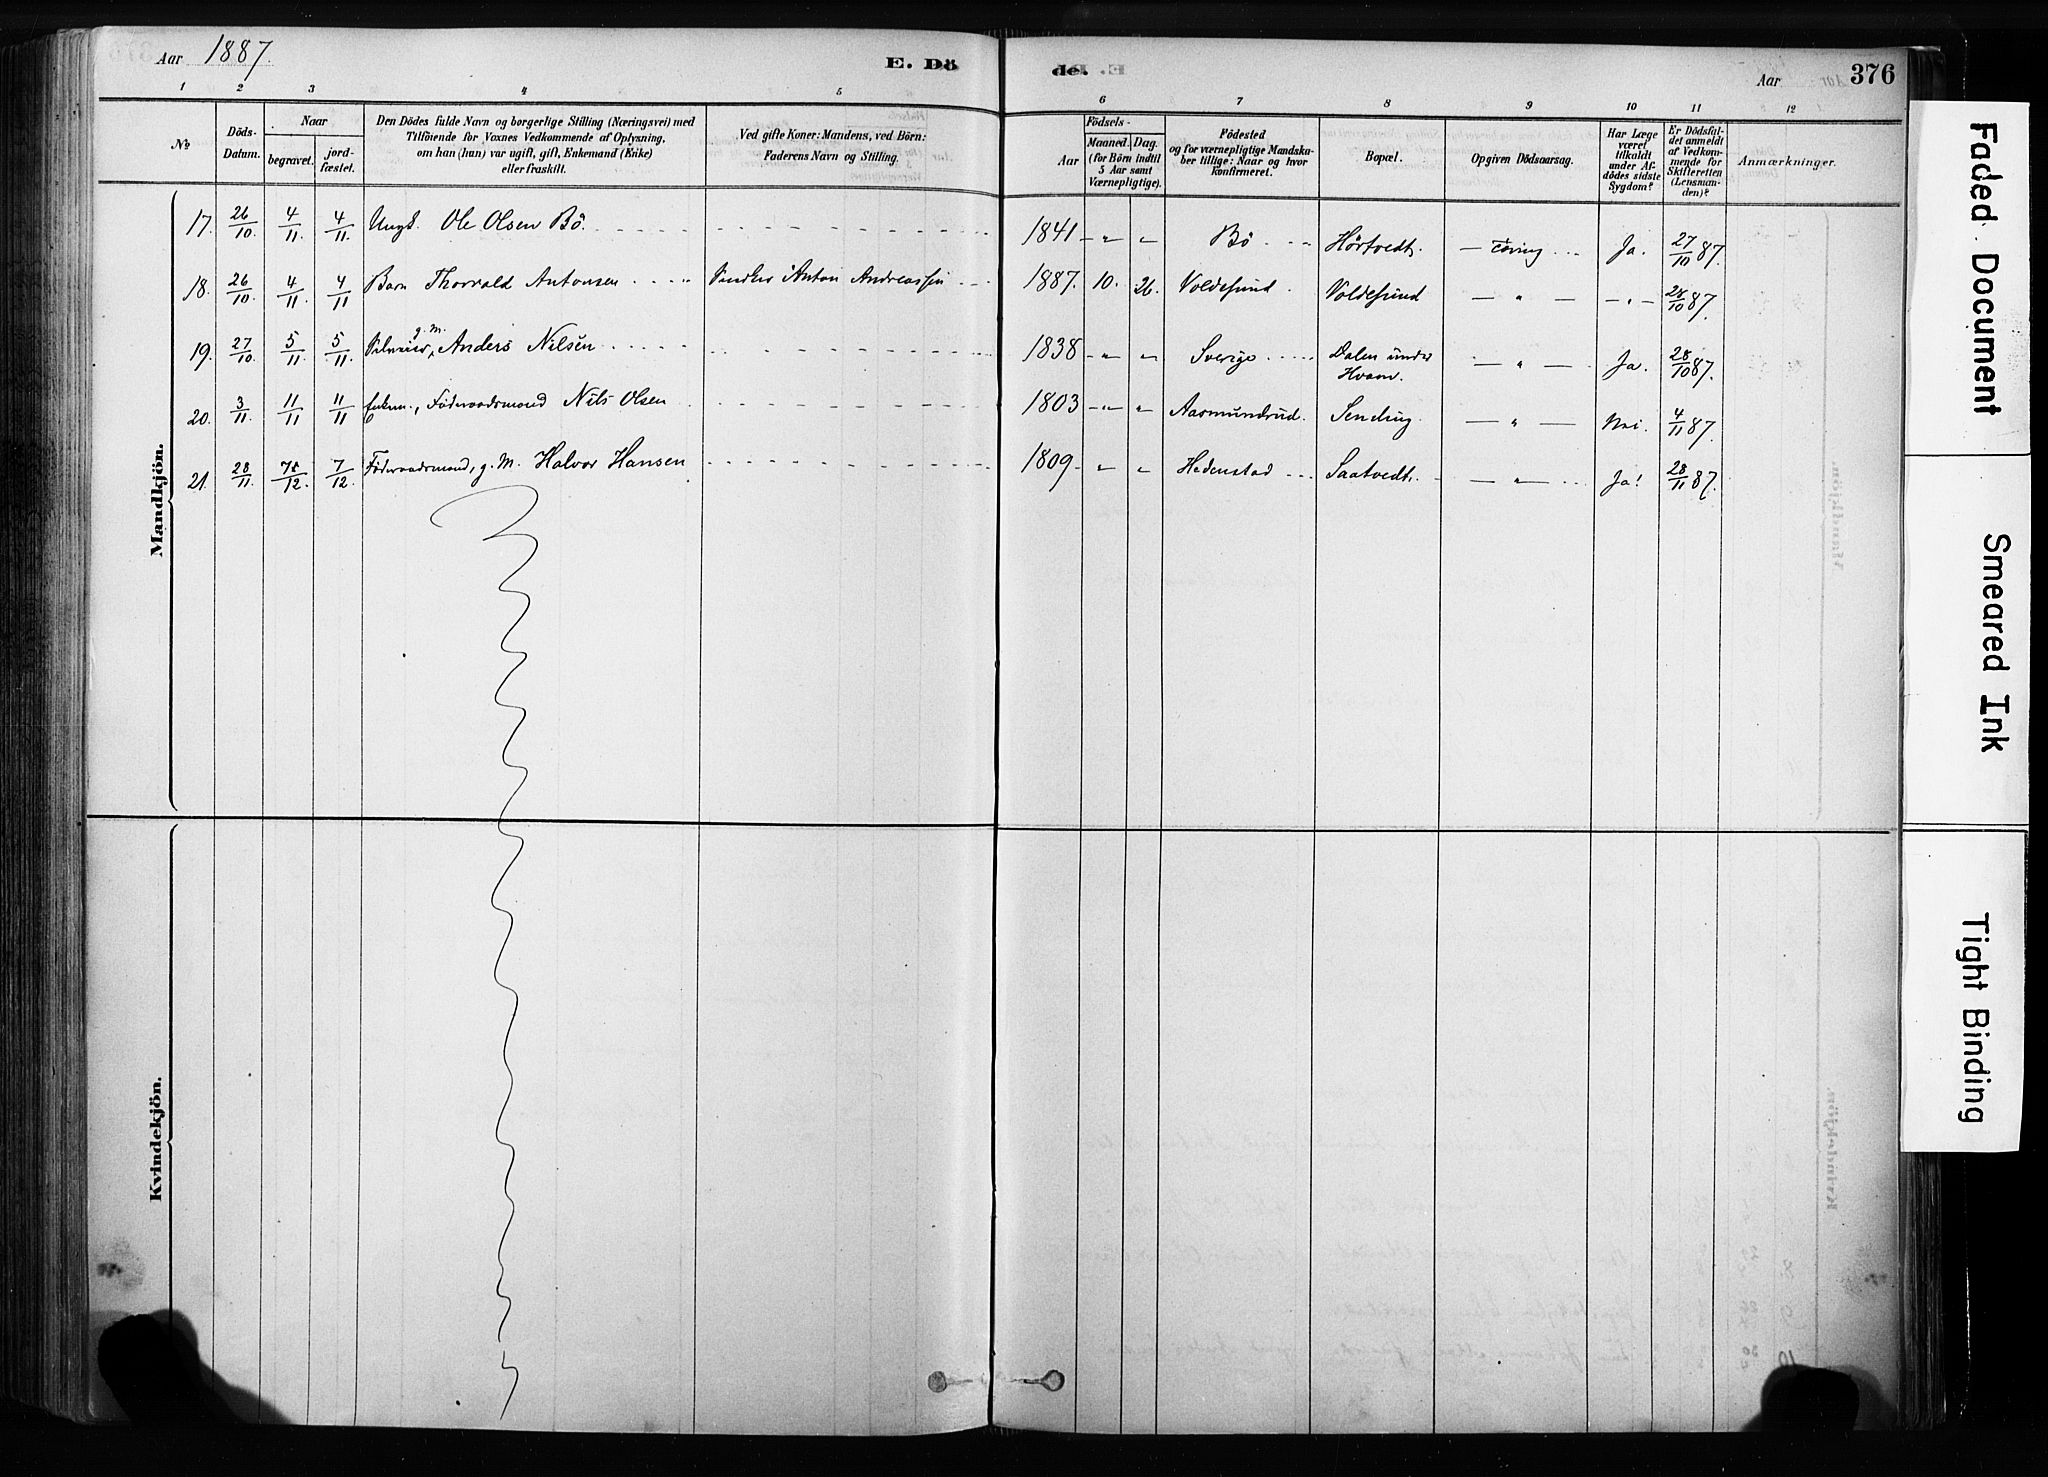 Aar 1887.
E. Dö
de.
Aar
376
1 2 3 4 5 6 7 8 9 10 11 12
№
Döds-
Datum.
Naar
begravet.
jord-
fæstet.
Den Dödes fulde Navn og borgerlige Stilling (Næringsvei) med
Tilföiende for Voxnes Vedkommende af Oplysning,
om han (hun) var ugift, gift, Enkemand (Enke)
eller fraskilt.
Ved gifte Koner: Mandens, ved Börn:
Faderens Navn og Stilling.
Födsels-
Aar
Maaned. Dag.
(for Börn indtil
5 Aar samt
Værnepligtige).
Födested
og for værnepligtige Mandska-
ber tillige: Naar og hvor
konfirmeret.
Bopæl.
Opgiven Dödsaarsag.
Har Læge
været
tilkaldt
under Af-
dödes sidste
Sygdom?
Er Dödsfal-
det anmeldt
af Vedkom-
mende for
Skifteretten
(Lensman-
den)?
Anmærkninger.
Mandkjön.
17. 26/10. 4/11. 4/11. Ungk. Ole Olsen Bö. 1841 - " - " Bö Hörtvedt. Ja. 27/10 87.
18. 26/10. 4/11. 4/11 Barn Thorvald Antonsen Anton Andreassen 1887. 10. 26. Voldesund. Voldesund — " — — " — 28/10 87.
19. 27/10 5/11. 5/11. g. M. Anders Nilsen 1838 - " - " Sverige Dalen under Hvam. — " — Ja. 28/10 87.
20. 3/11. 11/11 11/11 Enkem., Föderaadsmand Nils Olsen 1803 - " - " Aasmundrud. — " — Nei. 4/11 87.
21. 28/11. 7/12. 7/12. Föderaadsmand, g. M. Halvor Hansen 1809 - " " Hedenstad Saatvedt. — " — Ja! 28/11 87.
Kvindekjön.
Faded Document
Smeared Ink
Tight Binding